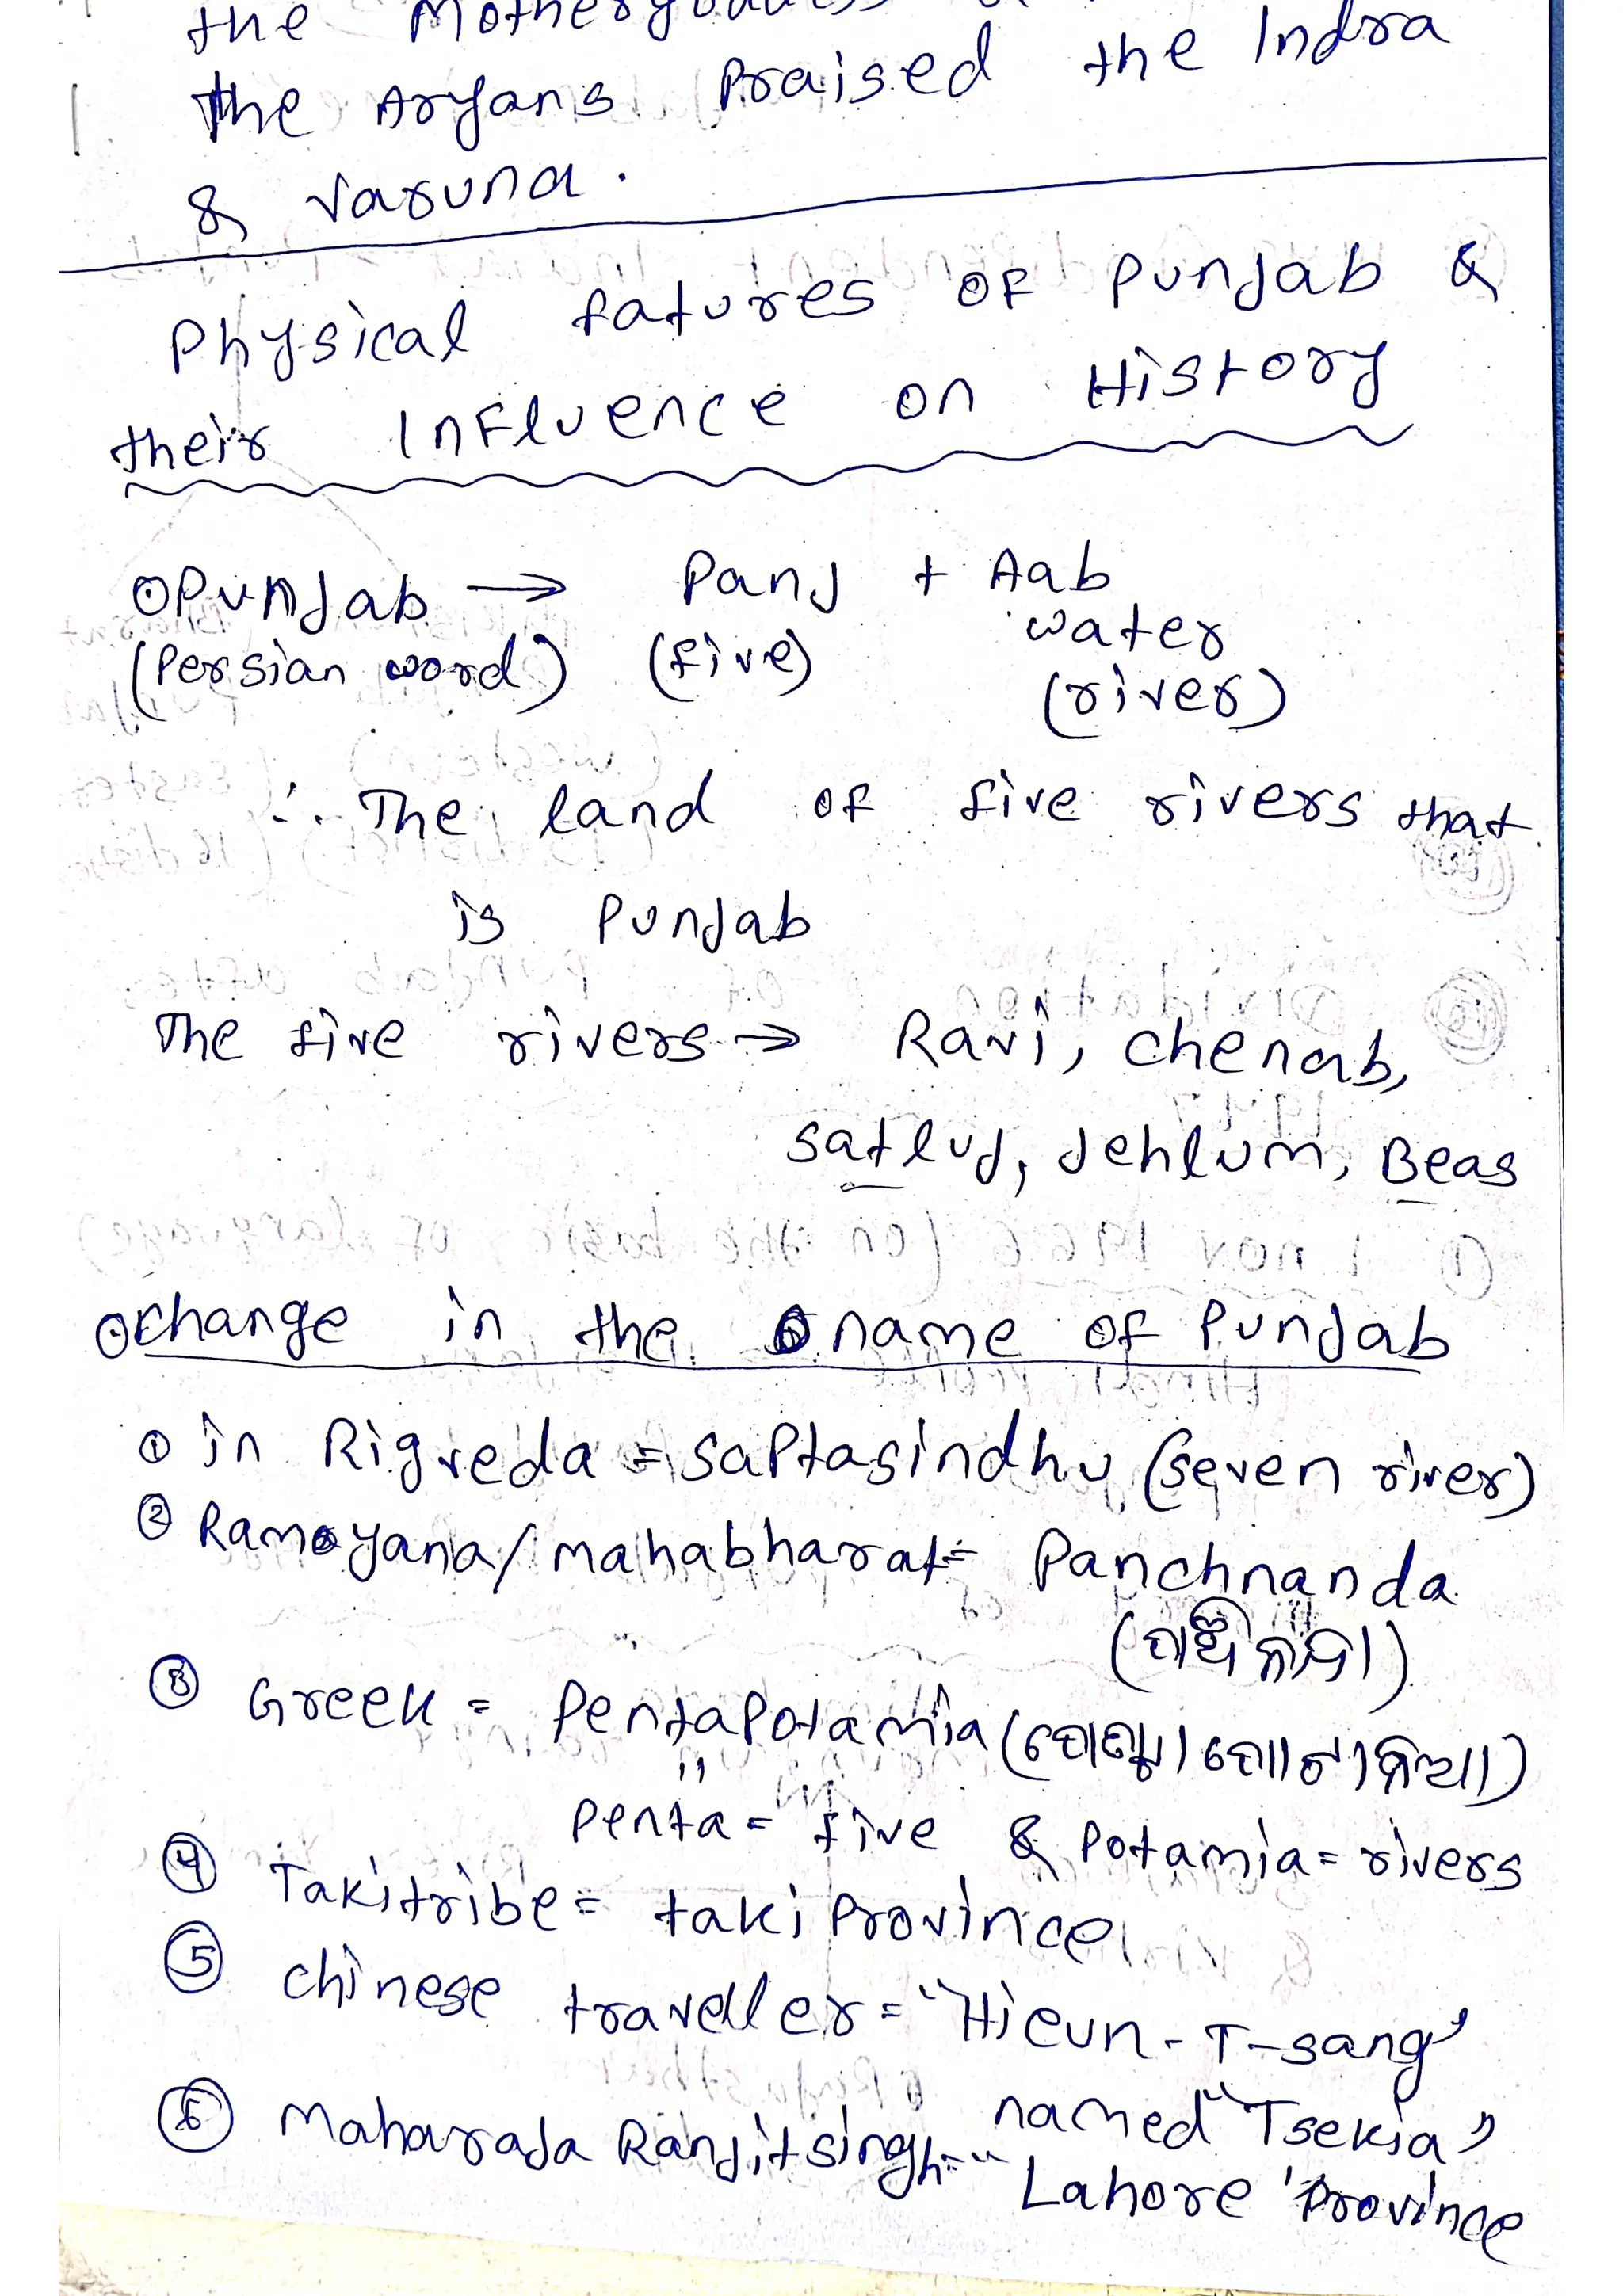 the Mothergoddess
the Aryans Praised the Indra
& Varuna.
Physical fatures OF Punjab &
their Influence on History
Punjab → Panj + Aab
(Persian word) (five) water
(river)
∴ The land of five rivers that
is Punjab
The five rivers → Ravi, Chenab,
Satluj, Jehlum, Beas
Change in the name of Punjab
① in Rigveda = Saptasindhu (seven river)
② Ramayana/mahabharat = Panchnanda
③ Greek = PentaPotamia
Penta = five & Potamia = rivers
④ Takitribe = taki Province
⑤ Chinese traveller = "Hieun-T-sang"
named "Tsekia"
⑥ Maharaja Ranjitsingh = "Lahore Province